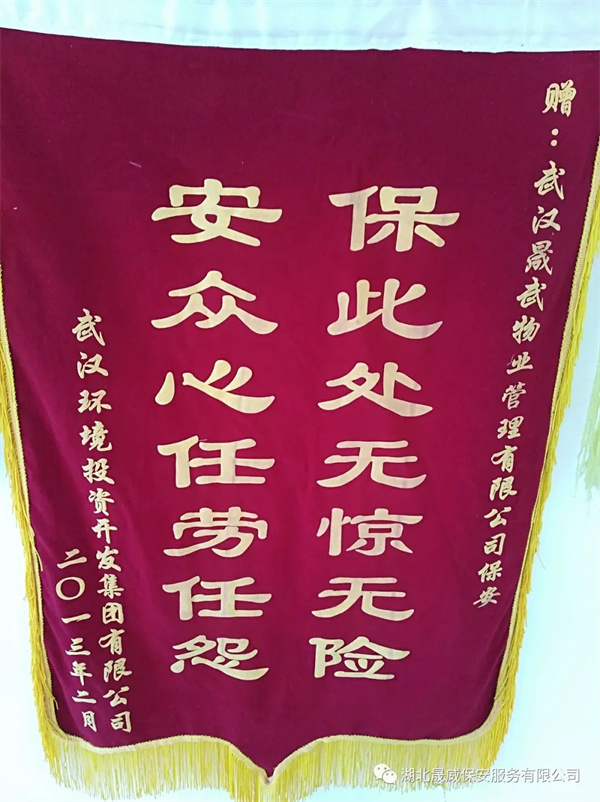 赠：武汉晟武物业管理有限公司保安
保此处无惊无险
安众心任劳任怨
武汉环境投资开发集团有限公司
二〇一三年二月
湖北晟威保安服务有限公司